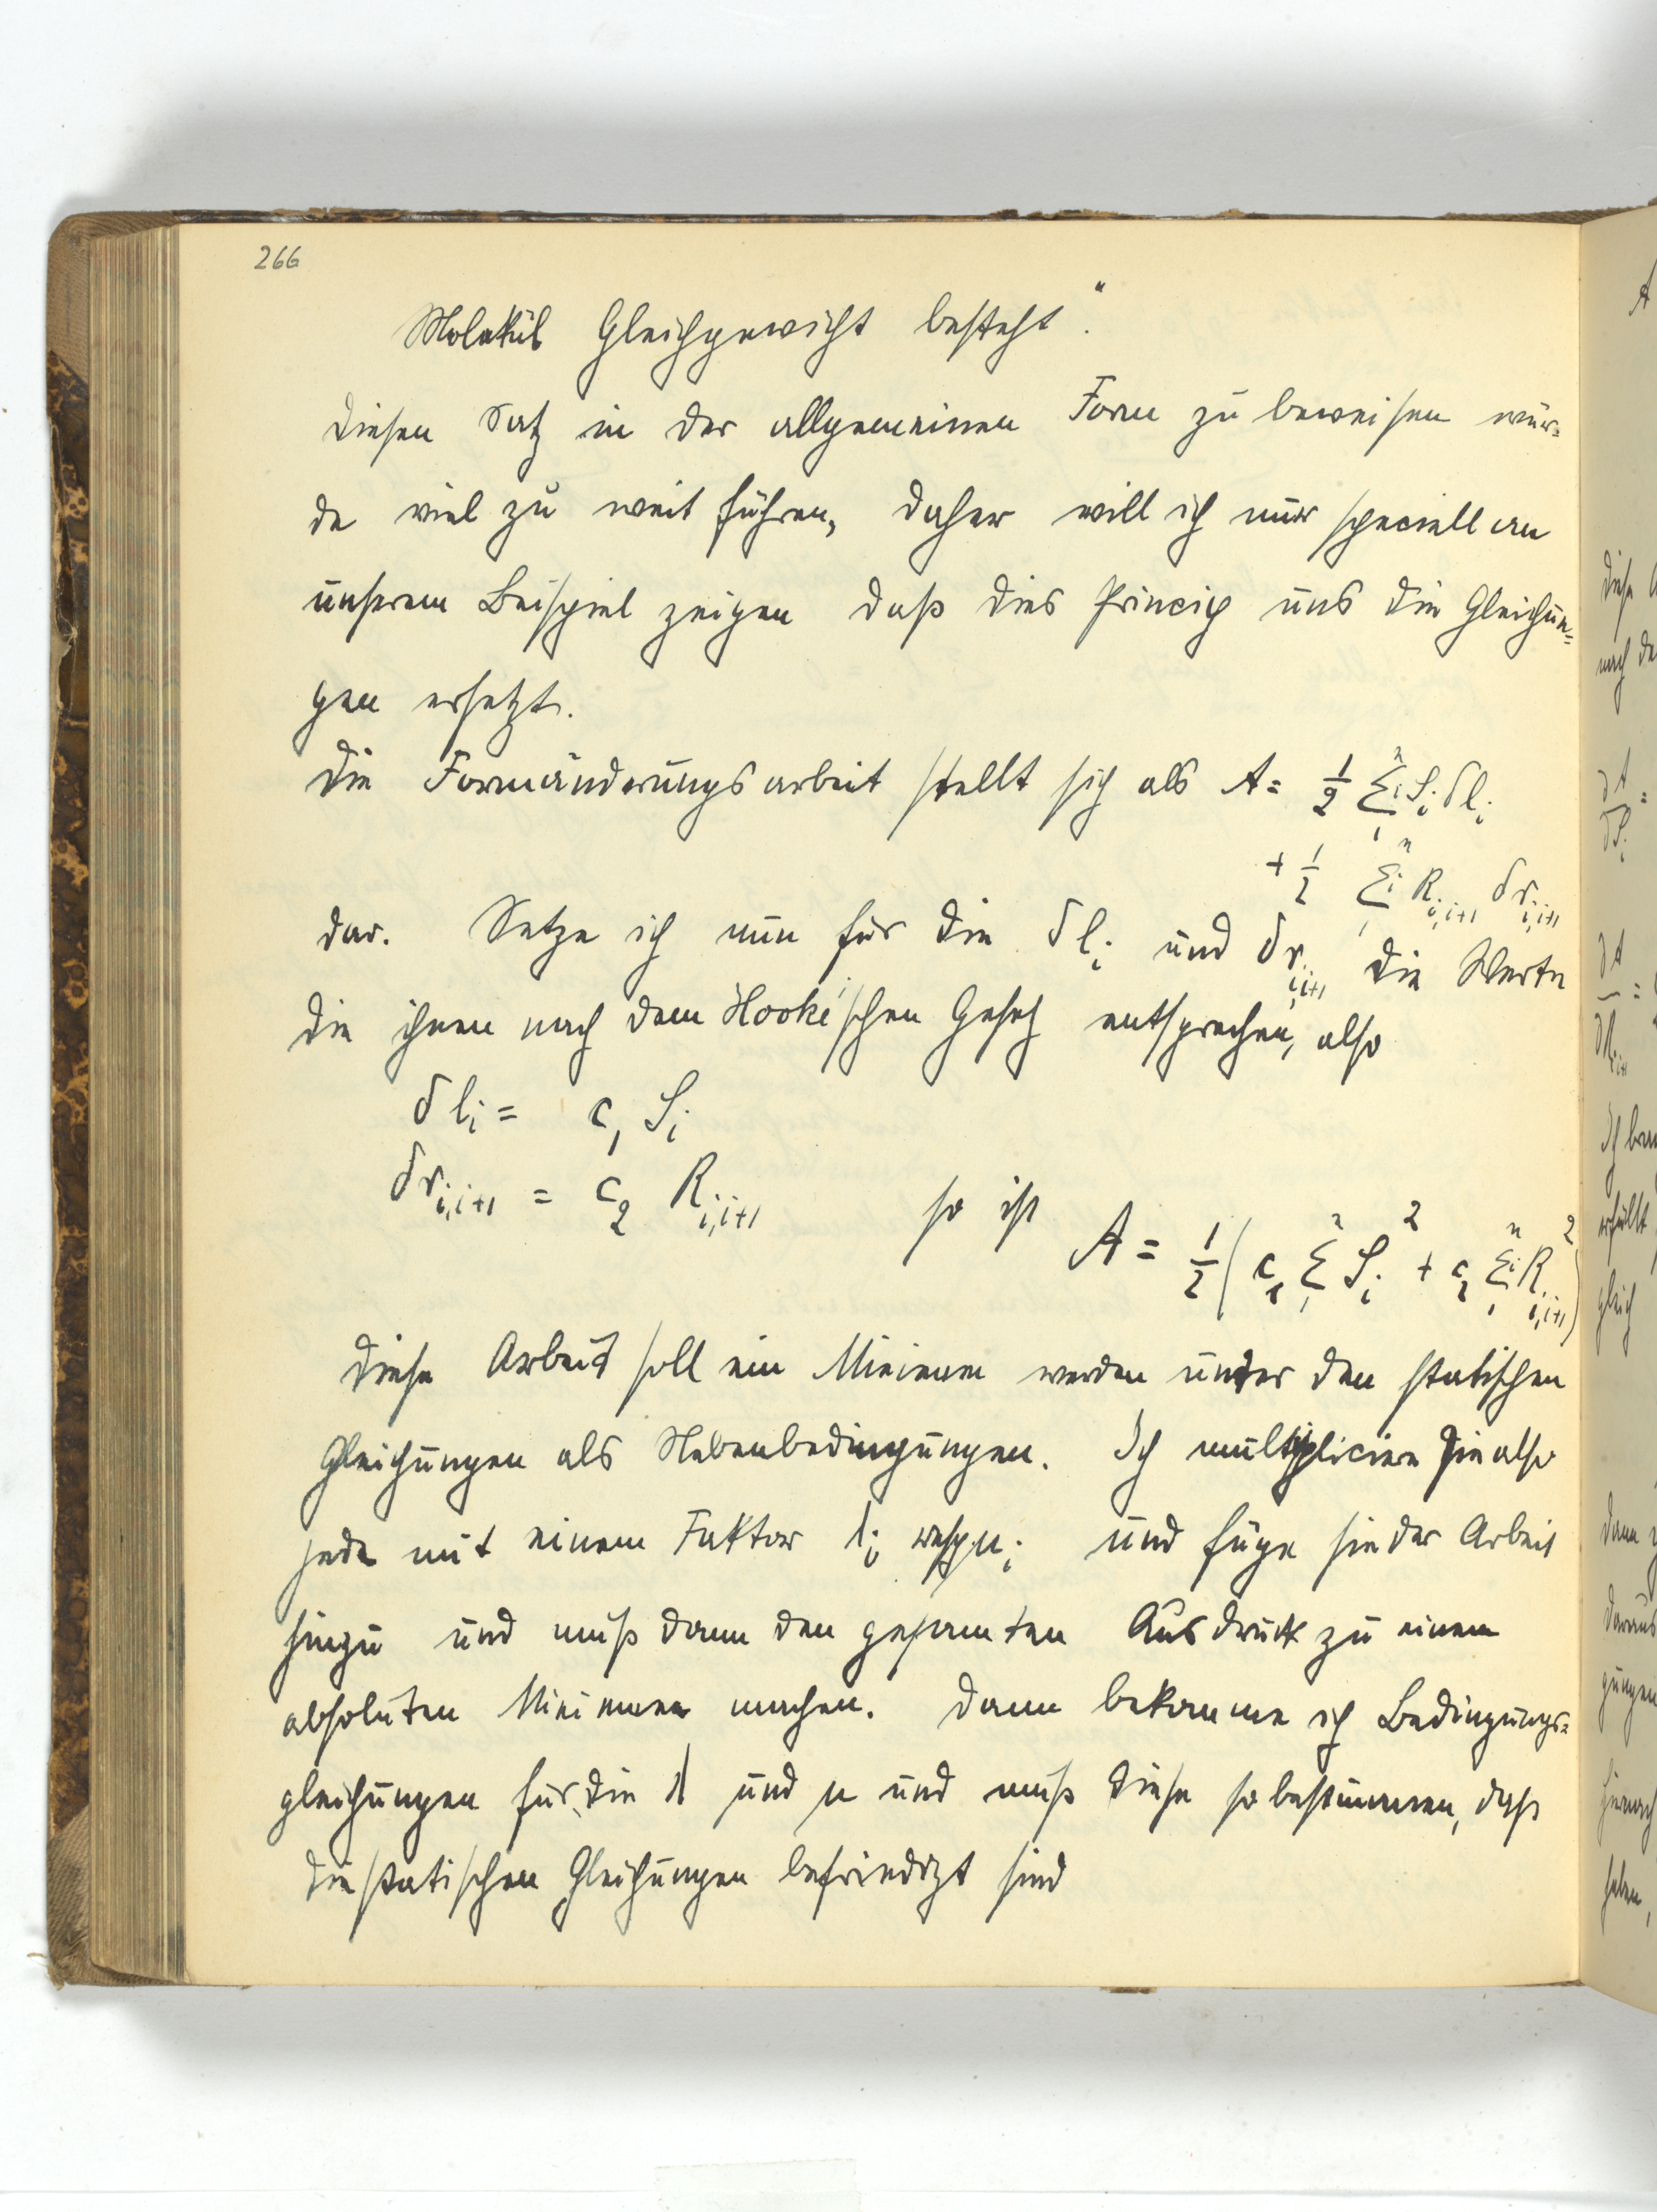 266
Molekül Gleichgewicht besteht".
Diesen Satz in der allgemeinen Form zu beweisen wür-
de viel zu weit führen, daher will ich nur speciell an
unserem Beispiel zeigen daß dies Princip uns die Gleichun-
gen ersetzt.
Die Formänderungsarbeit stellt sich als A = 1/2 Σ_1^n i S_i δl_i
+ 1/2 Σ_1^n i R_{i,i+1} δr_{i,i+1}
dar. Setze ich nun für die δl_i und δr_{i,i+1} die Werte
die ihnen nach dem Hooke'schen Gesetz entsprechen, also
δl_i = c_1 S_i
δr_{i,i+1} = c_2 R_{i,i+1} so ist A = 1/2 ( c_1 Σ_1^n S_i^2 + c_2 Σ_1^n i R_{i,i+1}^2 )
Diese Arbeit soll ein Minimum werden unter den statischen
Gleichungen als Nebenbedingungen. Ich multipliciere sie also
jede mit einem Faktor λ_i resp. μ_i und füge sie der Arbeit
hinzu und muß dann den gesamten Ausdruck zu einem
absoluten Minimum machen. Dann bekomme ich Bedingungs-
gleichungen für die λ und μ und muß diese so bestimmen, daß
die statischen Gleichungen befriedigt sind